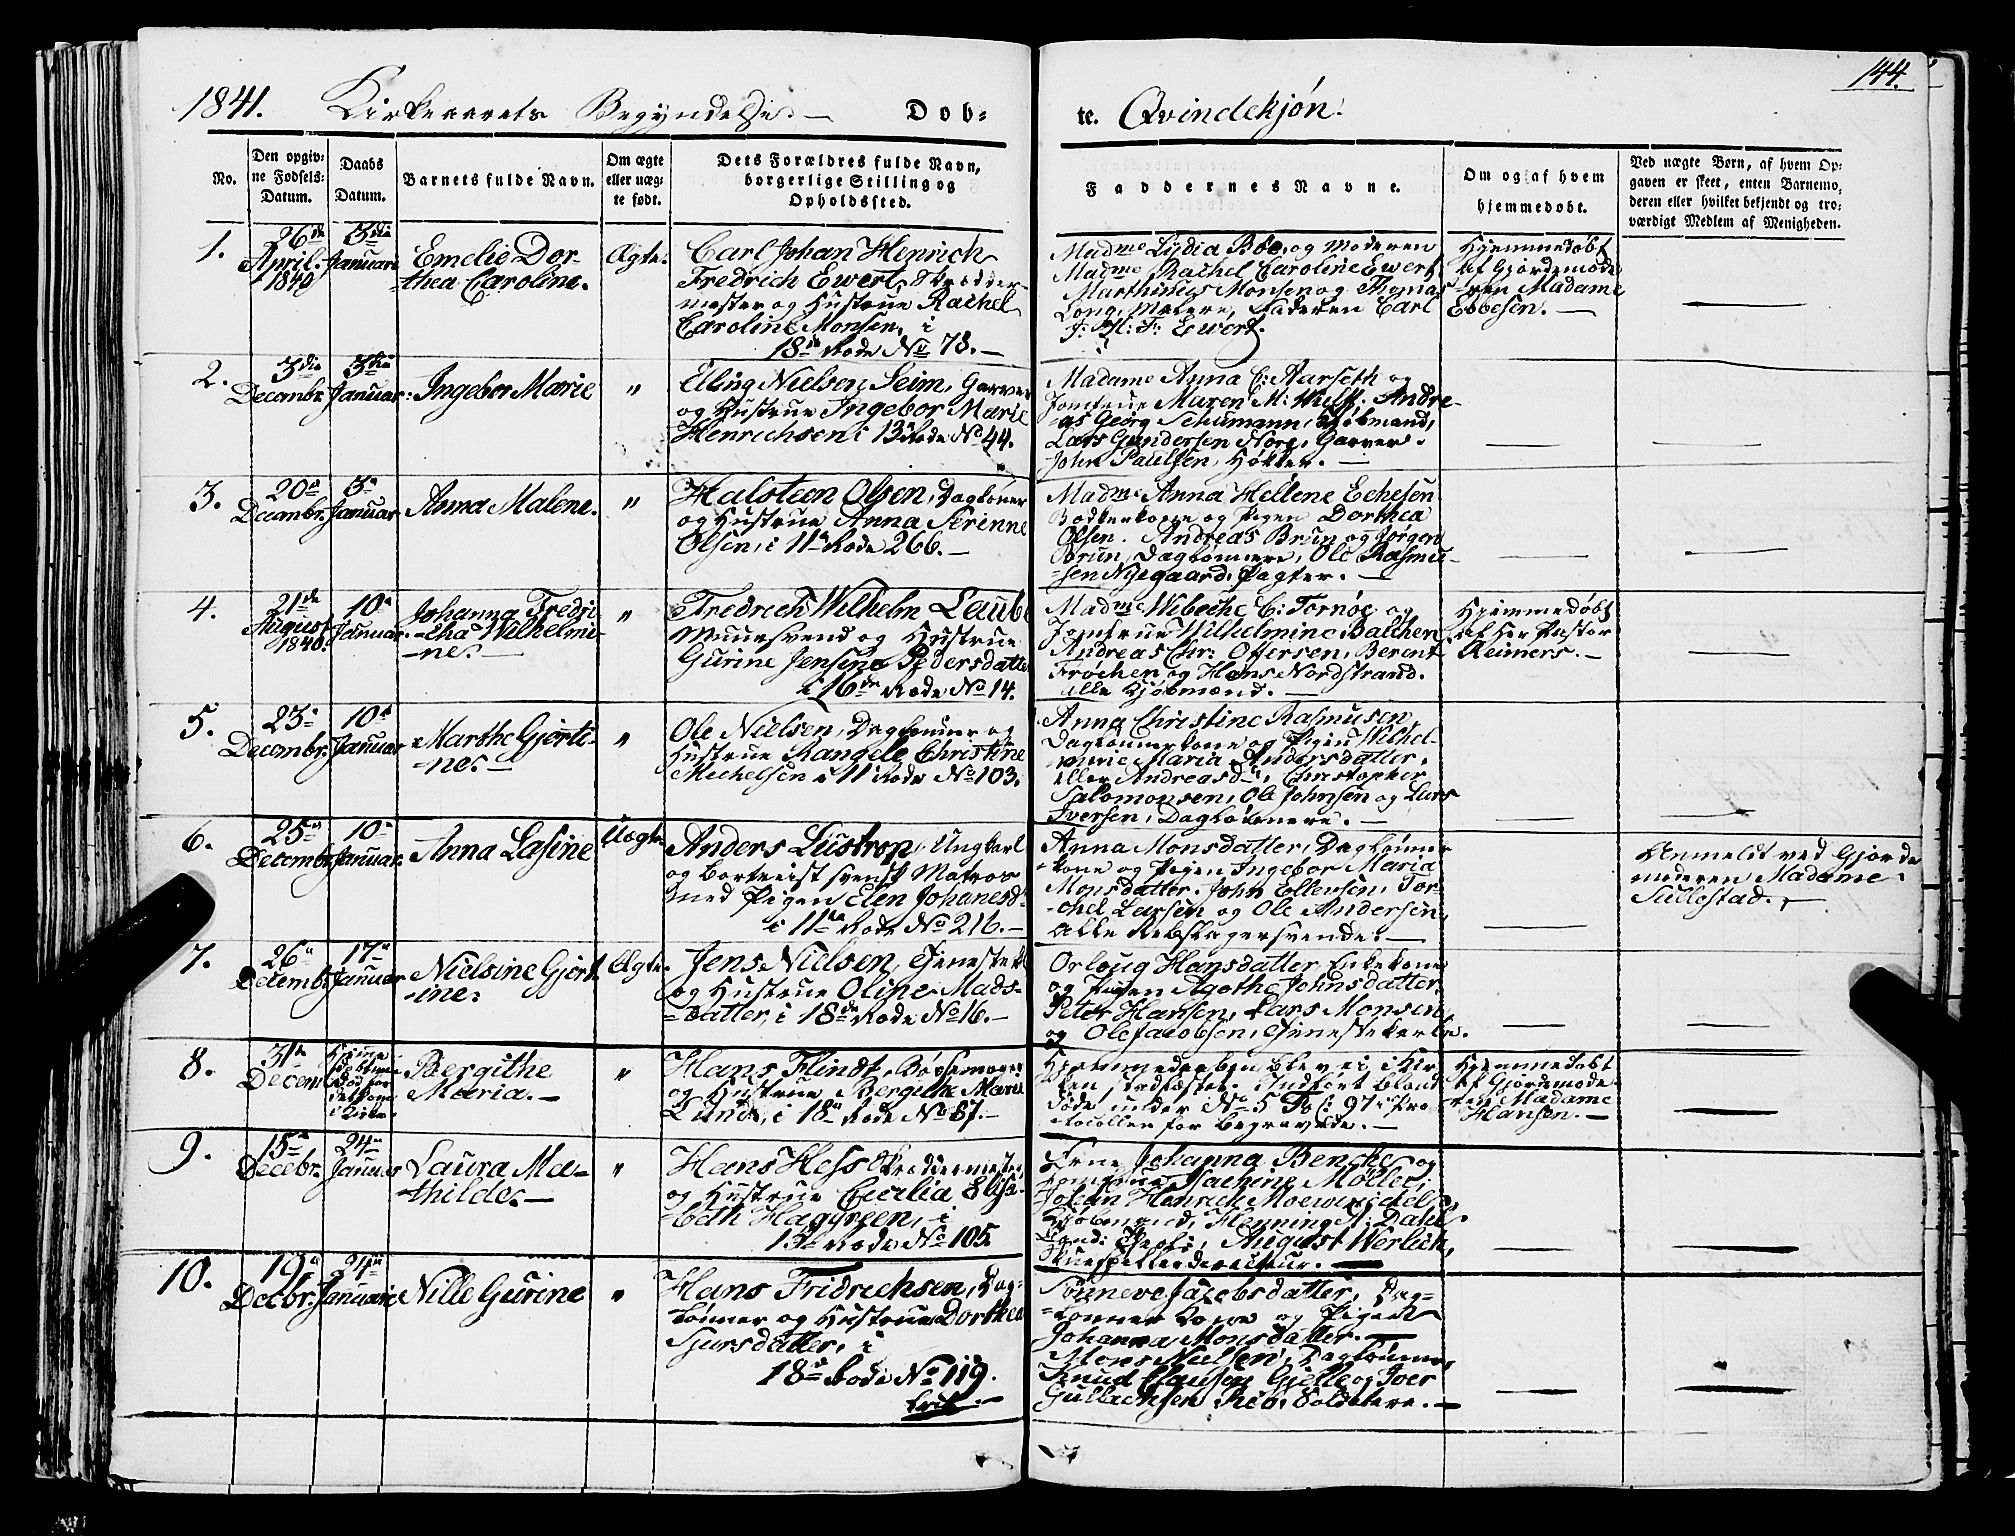 144.
1841. Kirkeaarets Begyndelse. — Døb-
te. Qvindekjøn.
No.
Den opgiv-
ne Fødsels-
Datum.
Daabs
Datum.
Barnets fulde Navn.
Om ægte
eller uæg-
te født.
Dets Forældres fulde Navn,
borgerlige Stilling og
Opholdssted.
Faddernes Navne.
Om og af hvem
hjemmedøbt.
Ved uægte Børn, af hvem Op-
gaven er skeet, enten Barnemo-
deren eller hvilket bekjendt og tro-
værdigt Medlem af Menigheden.
1.
26de
April
1840
3die
Januari
Emelie Dor-
thea Caroline.
Ægte.
Carl Johan Henrich
Fredrich Ewert, Skrædder-
mester og Hustrue Rachel
Caroline Monsen, i
18de Rode No 78. —
Madme Lydia Bøe og Moderen
Madme Rachel Caroline Ewert
Marthinus Monsen og Thomas
Long, Faderen Carl
J: H: F: Ewert.
Hjemmedøbt
af Gjordemode
ren Madame
Ebbesen. —
2.
3die
Decembr.
3die
Januar.
Ingebor Marie
"
Elling Nielsen Seim, Garver
og Hustrue Ingebor Marie
Henrichsen i 13de Rode No 44.
Madame Anna C: Aarseth og
Jomfrue Maren M: Wulff. Andre-
as Georg Schumann, Kjøbmand,
Lars Gundersen Garver.
John Paulsen, Høker. —
3.
20de
Decembr.
3de
Januar
Anna Malene.
"
Halsteen Olsen, Dagløner
og Hustrue Anna Serinne
Olsen, i 11de Rode 266. —
Madme Anna Hellene Echesen
Bødkerkone og Pigen Dorthea
Olsen. Andreas Brun og Jørgen
Brun, Daglønnere, Ole Rasmu-
-sen Nyegaard, Pagter. —
4.
21de
August
1840.
10de
Januar.
Johanna Fredri-
-cha Wilhelmi-
-ne. —
"
Fredrich Wilhelm Laube
Muursvend og Hustrue
Gurine Jensine Pedersdatter
i 16de Rode No 14.
Madme Wibeche C: Tornøe og
Jomfrue Wilhelmine Balchen
Andreas Chr: Ofersen, Berent
Frøchen og Hans Nordstrand.
alle Kjøbmænd. —
Hjemmedøbt
af Hr Pastor
Reimers. —
5.
23de
Decembr.
10de
Januar
Marthe Gjerti-
-ne. —
"
Ole Nielsen, Dagløner og
Hustrue Rangele Christine
Michelsen i 11te Rode No 103.
Anna Christine Rasmusen,
Dagløner kone og Pigen Wilhel-
mine Maria Andersdatter,
eller Andreasdr, Christopher
Salomonsen, Ole Johnsen og Lars
Iversen, Daglønnere. —
6.
25de
Decembr.
10de
Januar.
Anna Lasine
Uægte
Anders Leistrop, Ungkarl
og bortreist svensk Matros
med Pigen Elen Johanesd-
i 11te Rode No 216. —
Anna Monsdatter, Dagløner
-kone og Pigen Ingebor Maria
Monsdatter. John Ellensen, Tor-
-chel Larsen og Ole Andersen,
alle Rebslagersvende. —
Anmeldt ved Gjorde
moderen Madame
Sullestad. —
7.
26de
Decembr.
17de
Januar
Nielsine Gjert-
-ine.
Ægte.
Jens Nielsen, Tjenestek:
og Hustrue Oline Mads-
-datter, i 18de Rode No 16. —
Orloug Hansdatter Enkekone
og Pigen Agathe Johnsdatter,
Peter Hansen, Lars Monsen,
og Ole Jacobsen, Tjenestekarle.
8.
31te
Decem
Bergithe
Maria. —
"
Hans Flindt, Bøssemager
og Hustrue Bergithe Marie
Lund, i 18de Rode No 87. —
Hjemmedaaben blev ei i Kir-
ken stadfæstet. Indført bland
Døde under No 5 Fol: 97 i Pro-
-tocollen for Begravede. —
Hjemmedøbt
af Gjordemode-
ren Madame
Hansen. —
9.
15de
Decebr.
24de
Januar
Laura Ma-
-thilde. —
"
Hans Hess Skræddermester
og Hustrue Cecilia Elisa-
-beth Haggreen, i
13de Rode No 105.
Johanna Benche og
Jomfrue Nachine Møller,
Johan Henrich
Kjøbmænd, Henning M: Dahl
August Werlich,
Skuespillerdirecteur. —
10.
19de
Decbr.
24de
Januarii
Nille Gurine
"
Hans Fridrichsen, Dag-
lønner og Hustrue Dorthea
Sjursdatter, i
18de Rode No 119.
Sønneve Jacobsdatter, Dag-
-lønner Kone og Pigen
Johanna Monsdatter. —
Mons Nielsen, Dagløner,
Knud Clausen Gjelle og Iver
Gullachsen Soldatere. —